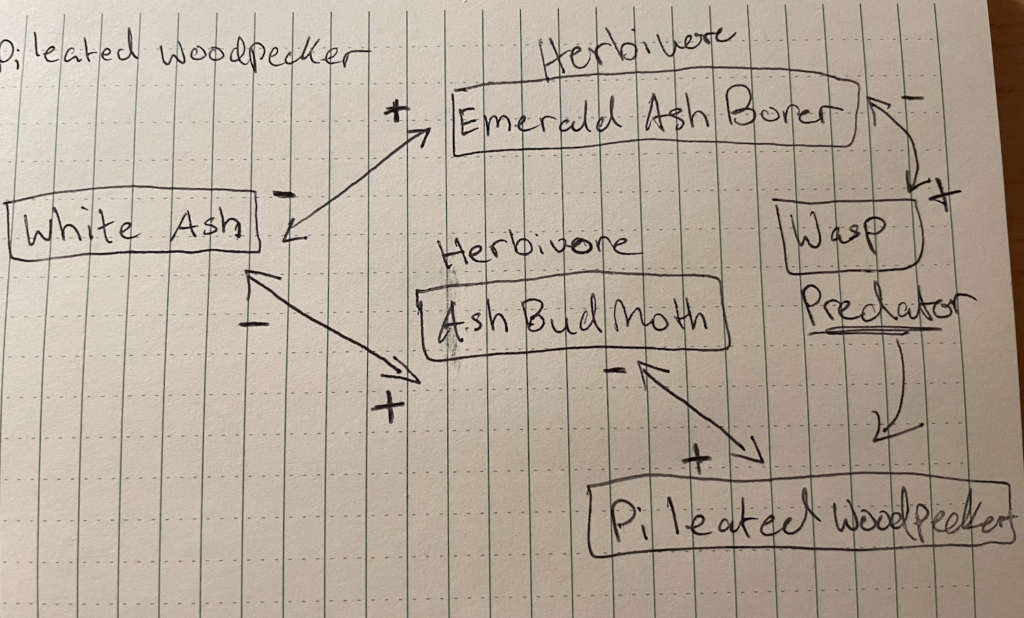 Pileated woodpecker
Herbivore
+
Emerald Ash Borer
-
-
+
White Ash
Wasp
Herbivore
Predator
Ash Bud Moth
-
-
+
+
Pileated Woodpecker